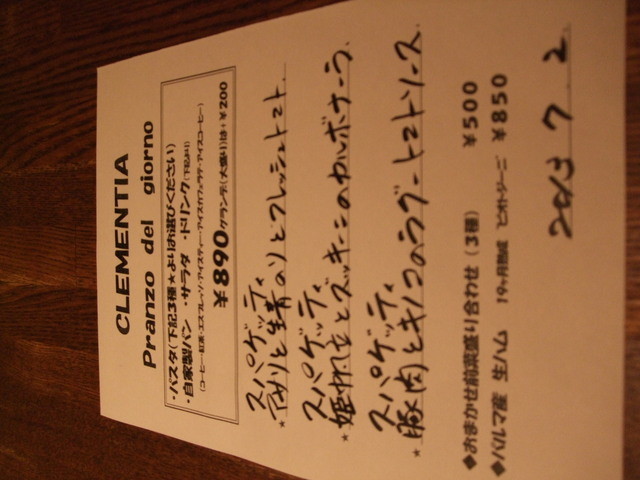 CLEMENTIA
Pranzo del giorno
・パスタ(下記3種★よりお選びください)
・自家製パン ・サラダ ・ドリンク(下記より)
(コーヒー・紅茶・エスプレッソ・アイスティー・アイスカフェラテ・アイスコーヒー)
¥890 グランデ(大盛り)は+¥200
スパゲッティ
★アサリと生青のりとフレッシュトマト
スパゲッティ
★姫帆立とズッキーニのカルボナーラ
スパゲッティ
★豚肉とキノコのラグートマトソース
◆おまかせ前菜盛り合わせ (3種) ¥500
◆パルマ産 生ハム 19ヶ月熟成 ピオトジーニ ¥850
2013 7 2